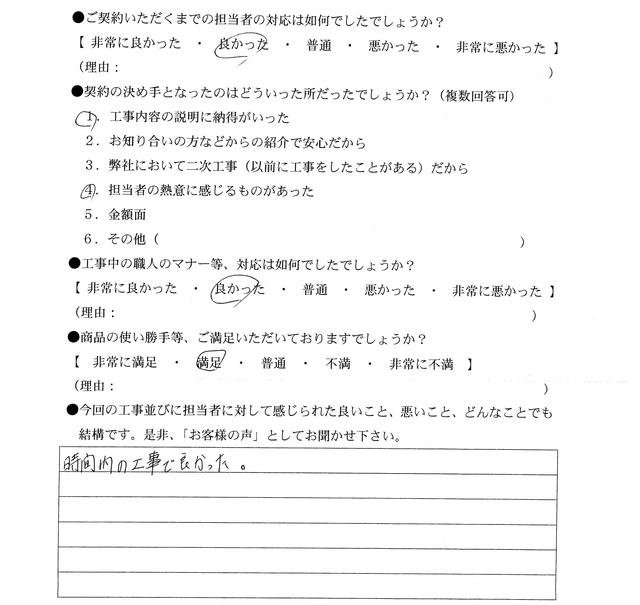 ●ご契約いただくまでの担当者の対応は如何でしたでしょうか？
【 非常に良かった ・ 良かった ・ 普通 ・ 悪かった ・ 非常に悪かった 】
（理由： ）
●契約の決め手となったのはどういった所だったでしょうか？（複数回答可）
1．工事内容の説明に納得がいった
2．お知り合いの方などからの紹介で安心だから
3．弊社において二次工事（以前に工事をしたことがある）だから
4．担当者の熱意に感じるものがあった
5．金額面
6．その他（ ）
●工事中の職人のマナー等、対応は如何でしたでしょうか？
【 非常に良かった ・ 良かった ・ 普通 ・ 悪かった ・ 非常に悪かった 】
（理由： ）
●商品の使い勝手等、ご満足いただいておりますでしょうか？
【 非常に満足 ・ 満足 ・ 普通 ・ 不満 ・ 非常に不満 】
（理由： ）
●今回の工事並びに担当者に対して感じられた良いこと、悪いこと、どんなことでも
結構です。是非、「お客様の声」としてお聞かせ下さい。
時間内の工事で良かった。